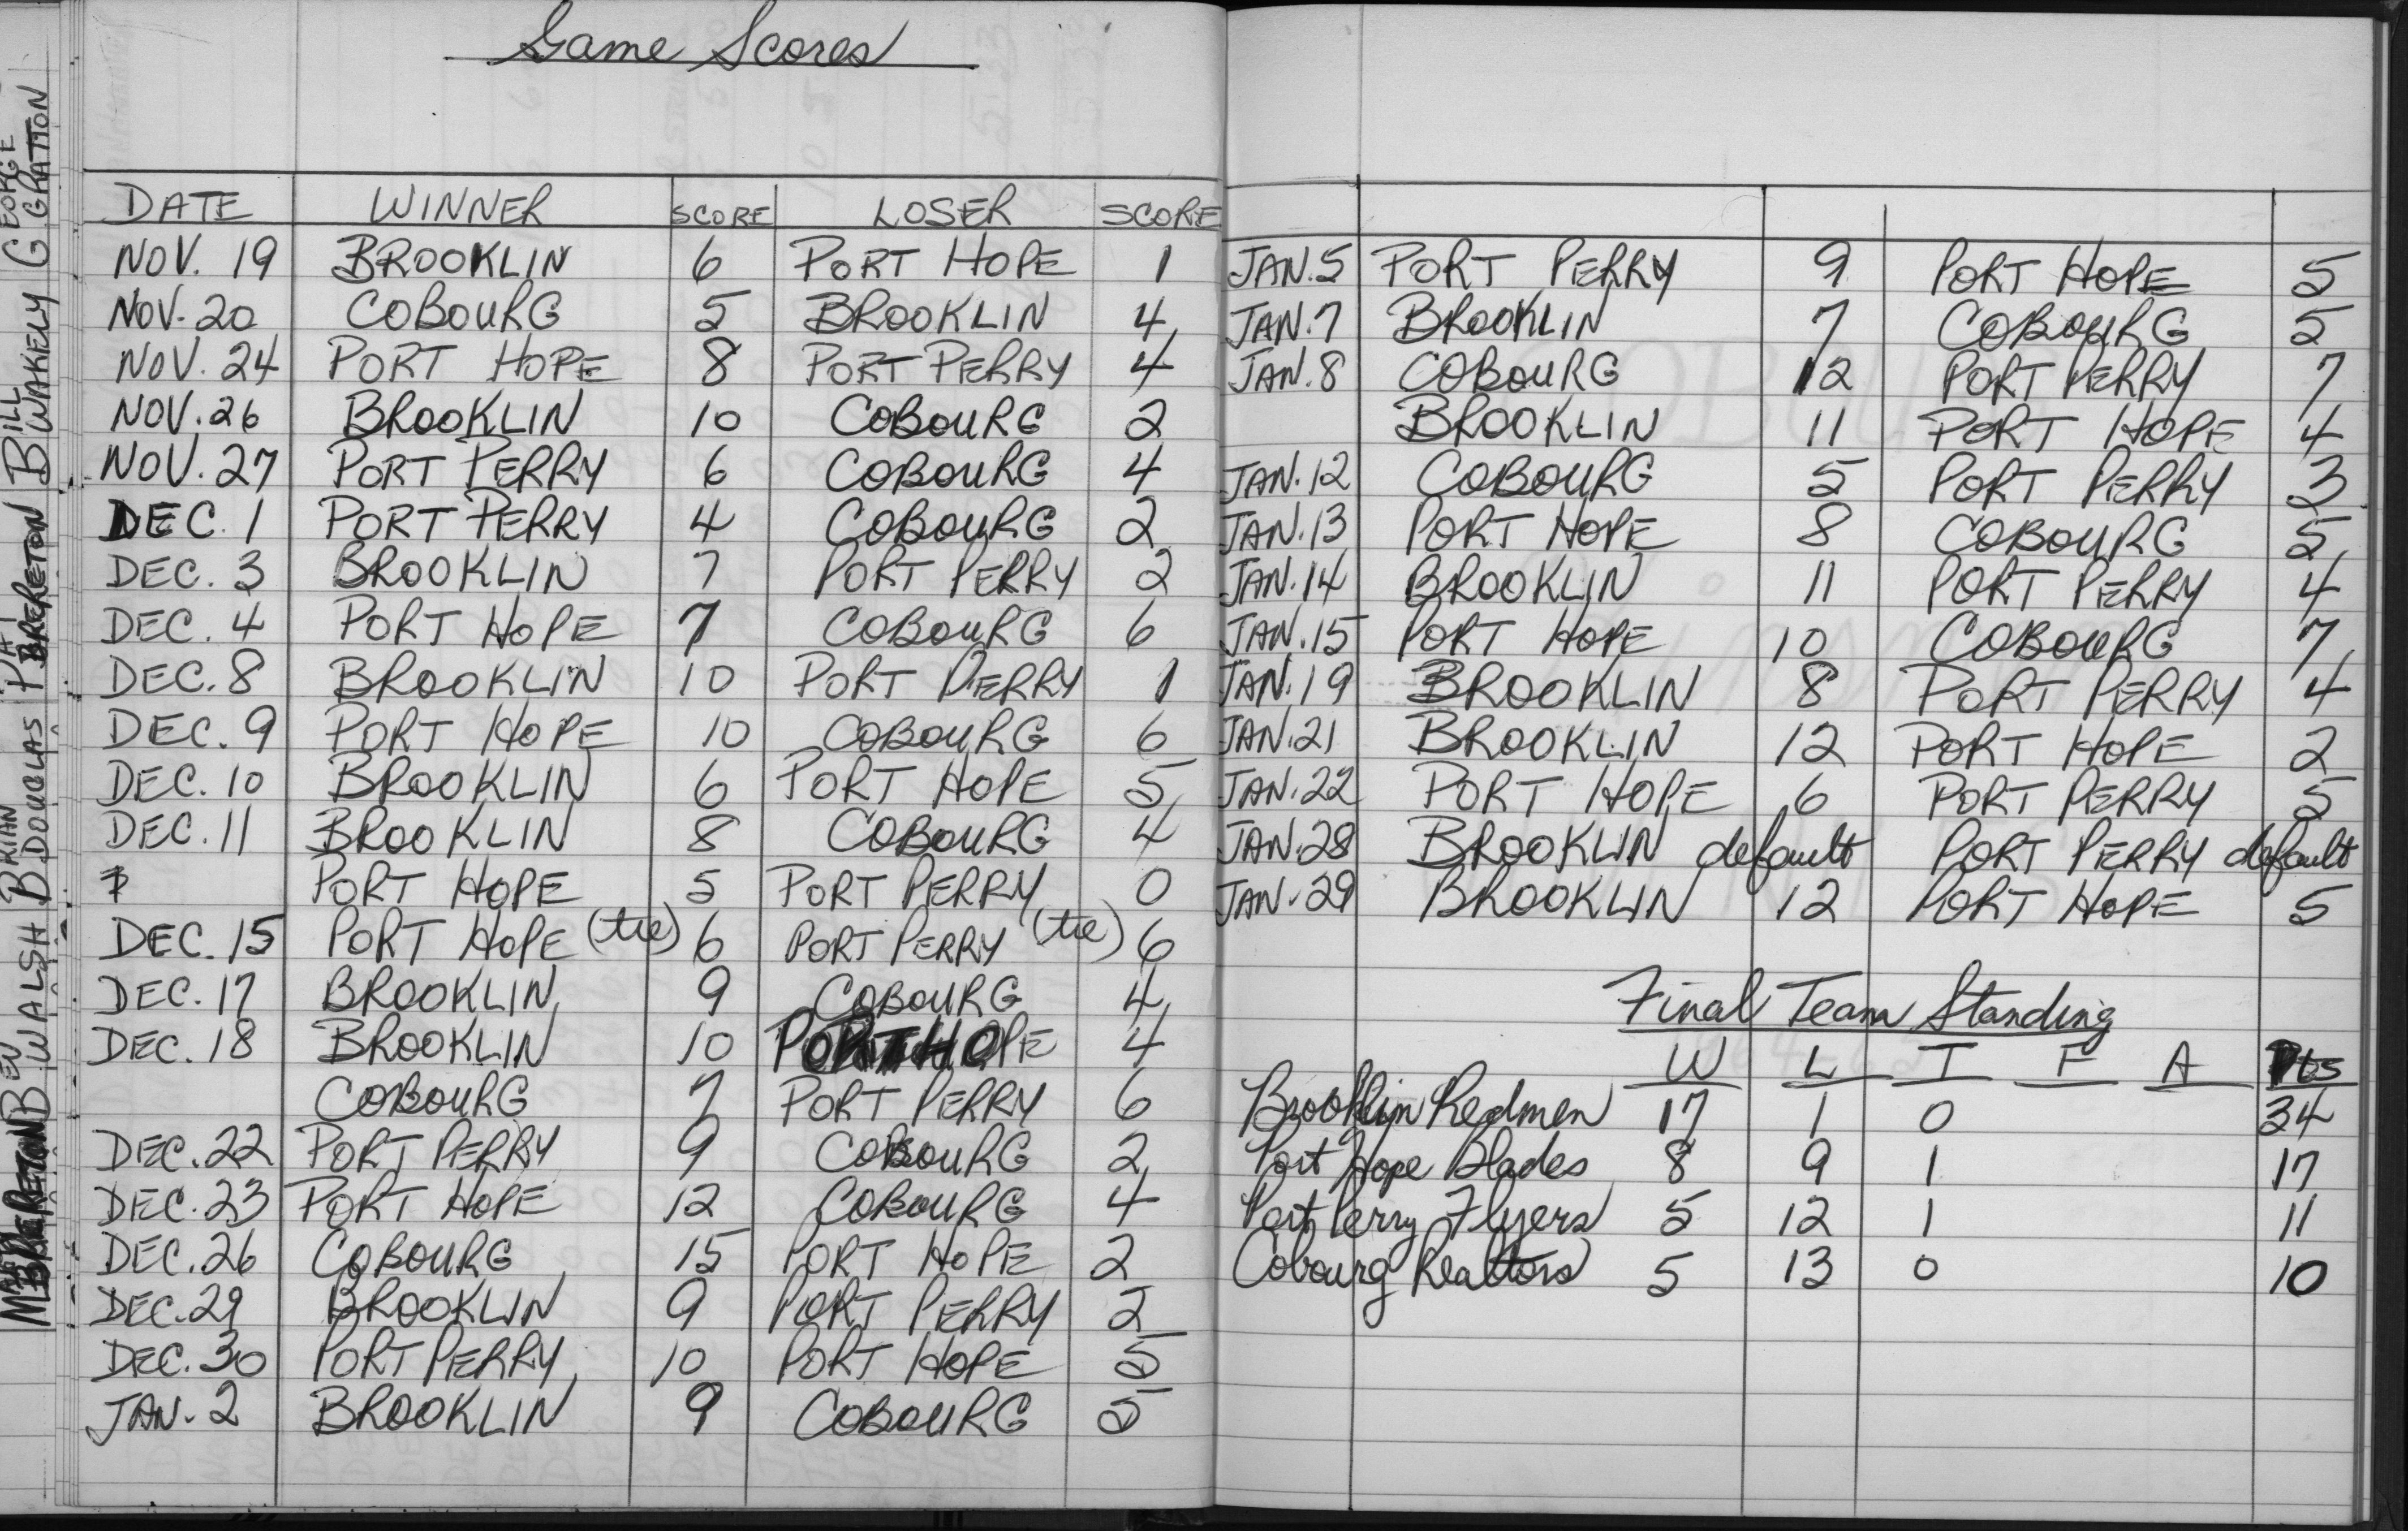 Game Scores
DATE WINNER SCORE LOSER SCORE
NOV. 19 BROOKLIN 6 PORT HOPE 1
NOV. 20 COBOURG 5 BROOKLIN 4
NOV. 24 PORT HOPE 8 PORT PERRY 4
NOV. 26 BROOKLIN 10 COBOURG 2
NOV. 27 PORT PERRY 6 COBOURG 4
DEC. 1 PORT PERRY 4 COBOURG 2
DEC. 3 BROOKLIN 7 PORT PERRY 2
DEC. 4 PORT HOPE 7 COBOURG 6
DEC. 8 BROOKLIN 10 PORT PERRY 1
DEC. 9 PORT HOPE 10 COBOURG 6
DEC. 10 BROOKLIN 6 PORT HOPE 5
DEC. 11 BROOKLIN 8 COBOURG 4
PORT HOPE 5 PORT PERRY 0
DEC. 15 PORT HOPE (tie) 6 PORT PERRY (tie) 6
DEC. 17 BROOKLIN 9 COBOURG 4
DEC. 18 BROOKLIN 10 PORT HOPE 4
COBOURG 7 PORT PERRY 6
DEC. 22 PORT PERRY 9 COBOURG 2
DEC. 23 PORT HOPE 12 COBOURG 4
DEC. 26 COBOURG 15 PORT HOPE 2
DEC. 29 BROOKLIN 9 PORT PERRY 2
DEC. 30 PORT PERRY 10 PORT HOPE 5
JAN. 2 BROOKLIN 9 COBOURG 5
JAN. 5 PORT PERRY 9 PORT HOPE 5
JAN. 7 BROOKLIN 7 COBOURG 5
JAN. 8 COBOURG 12 PORT PERRY 7
BROOKLIN 11 PORT HOPE 4
JAN. 12 COBOURG 5 PORT PERRY 3
JAN. 13 PORT HOPE 8 COBOURG 5
JAN. 14 BROOKLIN 11 PORT PERRY 4
JAN. 15 PORT HOPE 10 COBOURG 7
JAN. 19 BROOKLIN 8 PORT PERRY 4
JAN. 21 BROOKLIN 12 PORT HOPE 2
JAN. 22 PORT HOPE 6 PORT PERRY 5
JAN. 28 BROOKLIN default PORT PERRY default
JAN. 29 BROOKLIN 12 PORT HOPE 5
Final Team Standing
W L T F A Pts
Brooklin Redmen 17 1 0 34
Port Hope Blades 8 9 1 17
Port Perry Flyers 5 12 1 11
Cobourg Realtors 5 13 0 10
BRERETON
BEV WALSH
BRIAN DOUGLAS
PAT BRERETON
BILL WAKELY
GEORGE GRATTON